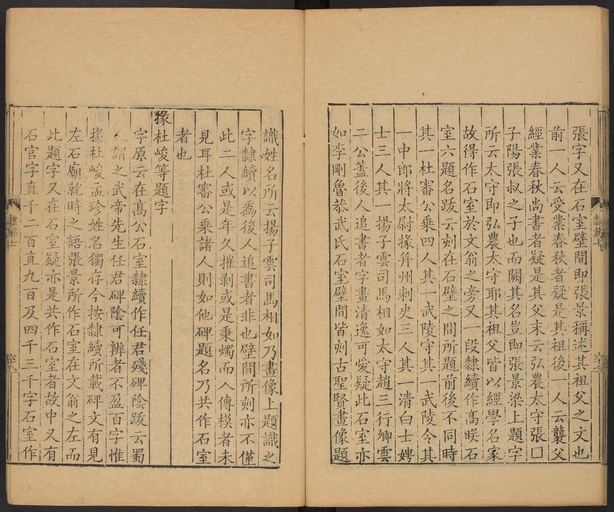 張字又在石室壁間即張景稱述其祖父之文也
前一人云受業春秋者疑是其祖後一人云襲父
經業春秋尚書者疑是其父末云弘農太守張□
子陽張叔之子也而闕其名豈即張景梁上題字
所云太守即弘農太守耶其祖父皆以經學名家
故得作石室於文翁之旁又一段隸續作高䀢石
室六題名跋云刻在石壁之間所題前後不同時
其一杜審公乘四人其一武陵守其一武陵令其
一中郎將太尉掾幷州刺史三人其一清白士娉
士三人其一揚子雲司馬相如太守趙三行卿雲
二公蓋後人追書者字畫清逸可愛疑此石室亦
如李剛魯恭武氏石室壁間皆刻古聖賢畫像題
識姓名所云揚子雲司馬相如乃畫像上題識之
字隸續以為後人追書者非也壁間所刻亦不僅
此二人或是年久摧剝或是秉燭而人傳模者未
見耳杜審公乘諸人則如他碑題名乃共作石室
者也
掾杜峻等題字
字原云在高公石室隸續作任君殘碑陰跋云蜀
人譜之武帝先生任君碑陰可辨者不盈百字惟
掾杜峻孟珍姓名獨存今按隸續所載碑文有見
左石廟就時之語張景所作石室在文翁之左而
此題字又在石室疑亦是共作石室者故中又有
石宮字直千二百直九百及四千三千字石室作